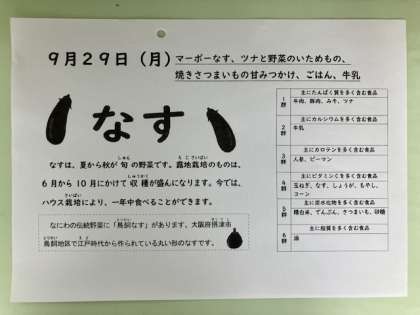 9月29日（月）マーボーなす、ツナと野菜のいためもの、
焼きさつまいもの甘みつかけ、ごはん、牛乳
なす
なすは、夏から秋が旬の野菜です。露地栽培のものは、
6月から10月にかけて収穫が盛んになります。今では、
ハウス栽培により、一年中食べることができます。
なにわの伝統野菜に「鳥飼なす」があります。大阪府摂津市
鳥飼地区で江戸時代から作られている丸い形のなすです。
1群 主にたんぱく質を多く含む食品
牛肉、豚肉、みそ、ツナ
2群 主にカルシウムを多く含む食品
牛乳
3群 主にカロテンを多く含む食品
人参、ピーマン
4群 主にビタミンCを多く含む食品
玉ねぎ、なす、しょうが、もやし、
コーン
5群 主に炭水化物を多く含む食品
精白米、でんぷん、さつまいも、砂糖
6群 主に脂質を多く含む食品
油